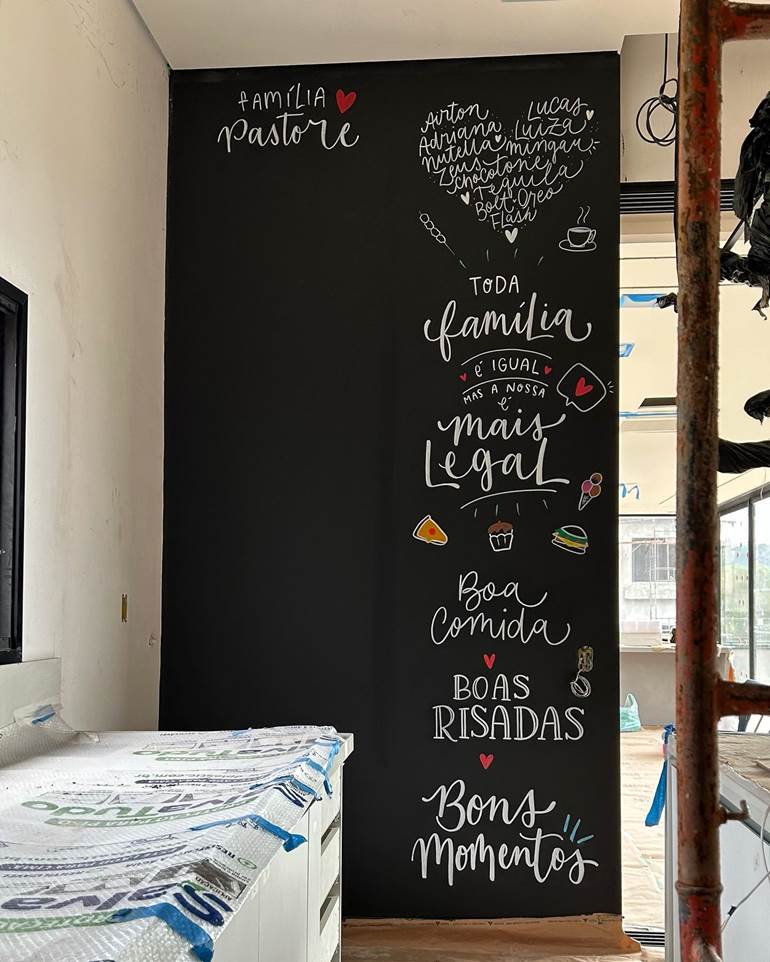 FAMÍLIA
Pastore
Airton
Adriana
Nutella
Zeus
Lucas
Luiza
mingau
chocotone
Tequila
Bolt Oreo
Flash
TODA
família
é IGUAL
MAS A NOSSA
é
mais
LEGAL
Boa
Comida
BOAS
RISADAS
Bons
Momentos
Salva